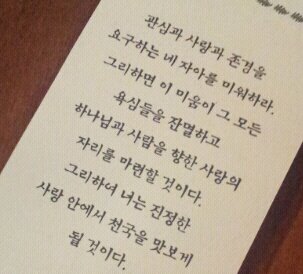 관심과 사랑과 존경을
요구하는 네 자아를 미워하라.
그리하면 이 미움이 그 모든
욕심들을 잔멸하고
하나님과 사람을 향한 사랑의
자리를 마련할 것이다.
그리하여 너는 진정한
사랑 안에서 천국을 맛보게
될 것이다.